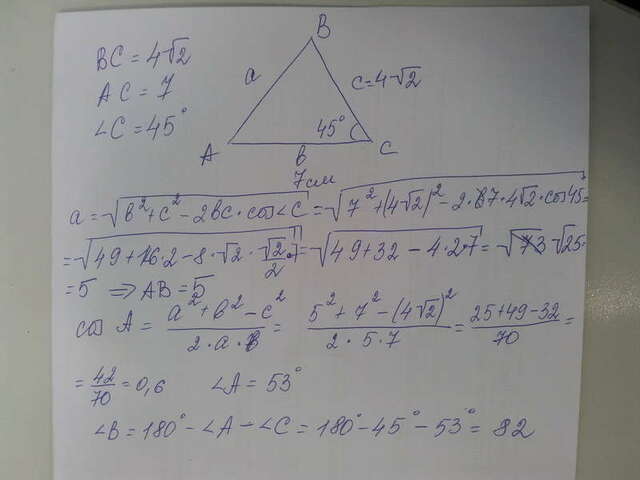 BC = 4√2
AC = 7
∠C = 45°
B
a
c=4√2
45°
A
в
C
7 см
a = √(в² + c² - 2вc · cos∠C) = √(7² + (4√2)² - 2 · 7 · 4√2 · cos 45 =
= √(49 + 16 · 2 - 8 · √2 · √2/2 · 7) = √(49 + 32 - 4 · 2 · 7) = √73 √25 =
= 5 ⇒ AB = 5
cos A = (a² + в² - c²)/(2 · a · в) = (5² + 7² - (4√2)²)/(2 · 5 · 7) = (25 + 49 - 32)/70 =
= 42/70 = 0,6 ∠A = 53°
∠B = 180° - ∠A - ∠C = 180° - 45° - 53° = 82